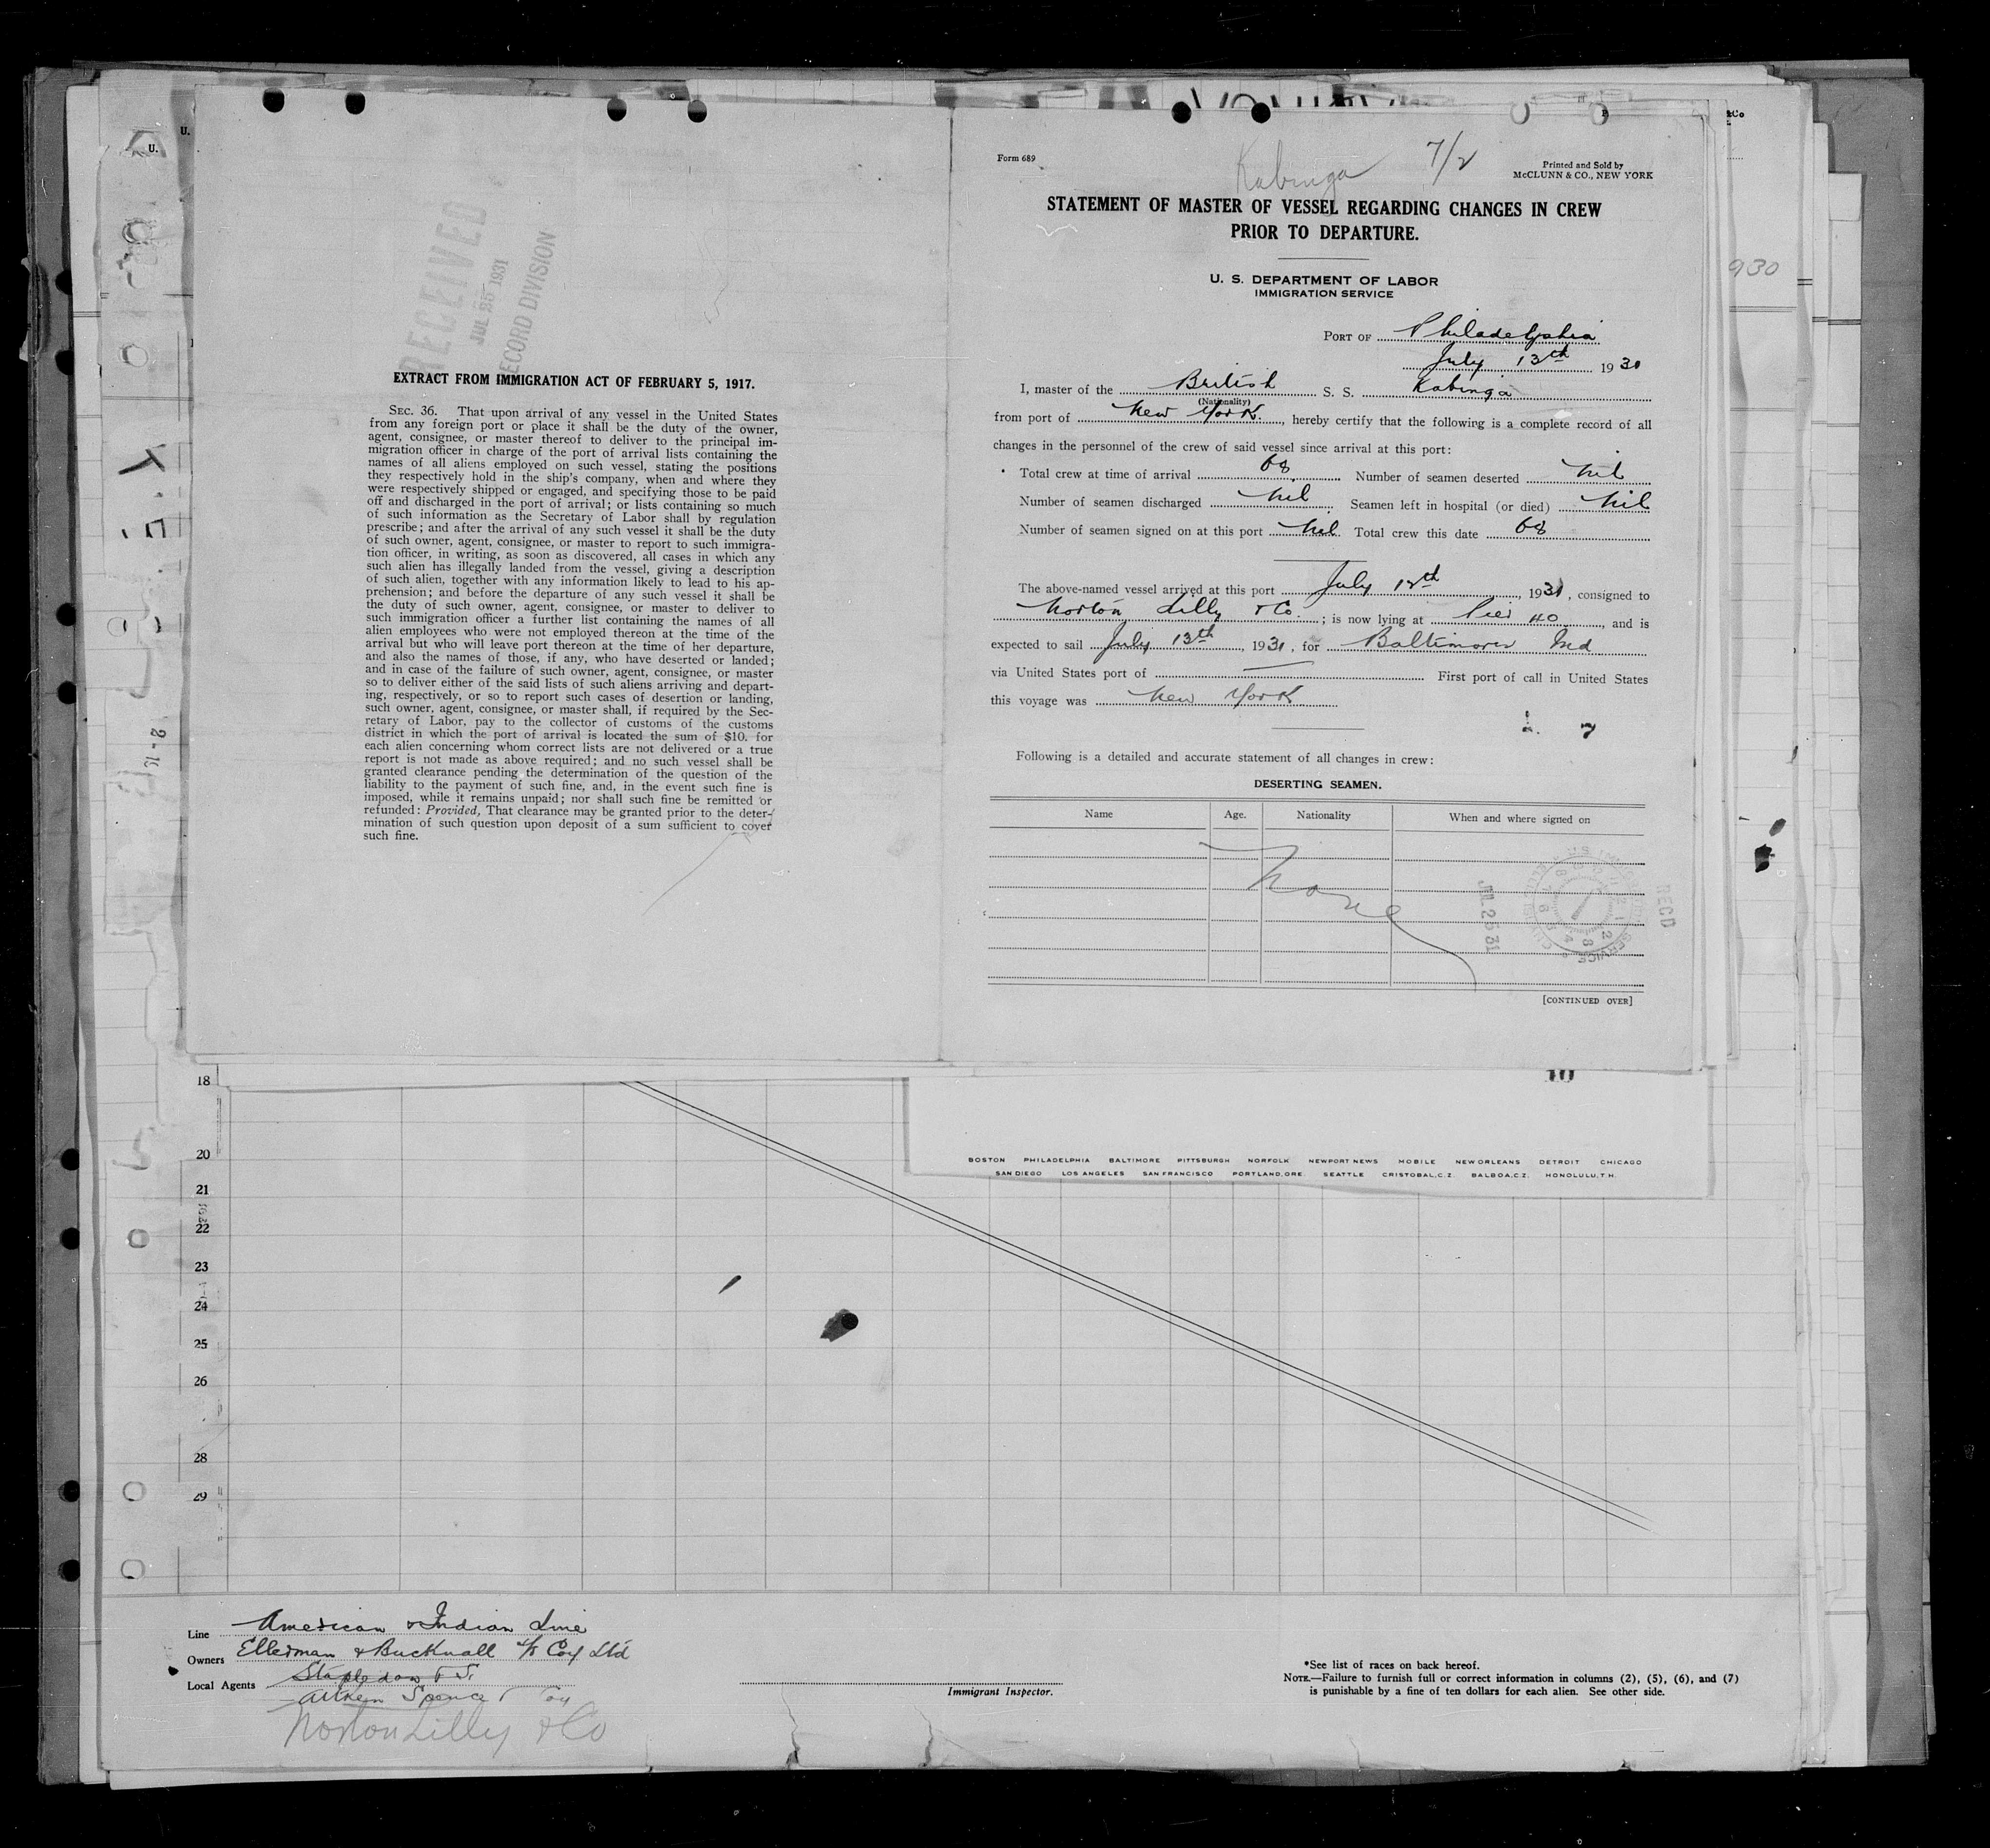 U.
U.
RECEIVED
JUL 25 1931
RECORD DIVISION
EXTRACT FROM IMMIGRATION ACT OF FEBRUARY 5, 1917.
SEC. 36. That upon arrival of any vessel in the United States
from any foreign port or place it shall be the duty of the owner,
agent, consignee, or master thereof to deliver to the principal im-
migration officer in charge of the port of arrival lists containing the
names of all aliens employed on such vessel, stating the positions
they respectively hold in the ship's company, when and where they
were respectively shipped or engaged, and specifying those to be paid
off and discharged in the port of arrival; or lists containing so much
of such information as the Secretary of Labor shall by regulation
prescribe; and after the arrival of any such vessel it shall be the duty
of such owner, agent, consignee, or master to report to such immigra-
tion officer, in writing, as soon as discovered, all cases in which any
such alien has illegally landed from the vessel, giving a description
of such alien, together with any information likely to lead to his ap-
prehension; and before the departure of any such vessel it shall be
the duty of such owner, agent, consignee, or master to deliver to
such immigration officer a further list containing the names of all
alien employees who were not employed thereon at the time of the
arrival but who will leave port thereon at the time of her departure,
and also the names of those, if any, who have deserted or landed;
and in case of the failure of such owner, agent, consignee, or master
so to deliver either of the said lists of such aliens arriving and depart-
ing, respectively, or so to report such cases of desertion or landing,
such owner, agent, consignee, or master shall, if required by the Sec-
retary of Labor, pay to the collector of customs of the customs
district in which the port of arrival is located the sum of $10. for
each alien concerning whom correct lists are not delivered or a true
report is not made as above required; and no such vessel shall be
granted clearance pending the determination of the question of the
liability to the payment of such fine, and, in the event such fine is
imposed, while it remains unpaid; nor shall such fine be remitted or
refunded: Provided, That clearance may be granted prior to the deter-
mination of such question upon deposit of a sum sufficient to cover
such fine.
Form 689
Kabinga 7/2
Printed and Sold by
McCLUNN & CO., NEW YORK
STATEMENT OF MASTER OF VESSEL REGARDING CHANGES IN CREW
PRIOR TO DEPARTURE.
U. S. DEPARTMENT OF LABOR
IMMIGRATION SERVICE
PORT OF Philadelphia
July 13th 1931
I, master of the British S. S. Kabinga
(Nationality)
from port of New York, hereby certify that the following is a complete record of all
changes in the personnel of the crew of said vessel since arrival at this port:
Total crew at time of arrival 68 Number of seamen deserted nil
Number of seamen discharged nil Seamen left in hospital (or died) nil
Number of seamen signed on at this port nil Total crew this date 68
The above-named vessel arrived at this port July 12th, 1931, consigned to
Norton Lilly & Co.; is now lying at Pier 40, and is
expected to sail July 13th, 1931, for Baltimore Md
via United States port of — First port of call in United States
this voyage was New York
7
Following is a detailed and accurate statement of all changes in crew:
DESERTING SEAMEN.
Name Age. Nationality When and where signed on
None
JUL 25 31
RECD
[CONTINUED OVER]
930
&Co
10
BOSTON PHILADELPHIA BALTIMORE PITTSBURGH NORFOLK NEWPORT NEWS MOBILE NEW ORLEANS DETROIT CHICAGO
SAN DIEGO LOS ANGELES SAN FRANCISCO PORTLAND, ORE. SEATTLE CRISTOBAL, C.Z. BALBOA, C.Z. HONOLULU, T.H.
18
20
21
22
23
24
25
26
28
29
Line American & Indian Line
Owners Ellerman & Bucknall S/S Coy Ltd
Local Agents
Aitken Spence & Coy
Norton Lilly & Co
Immigrant Inspector.
*See list of races on back hereof.
NOTE.—Failure to furnish full or correct information in columns (2), (5), (6), and (7)
is punishable by a fine of ten dollars for each alien. See other side.